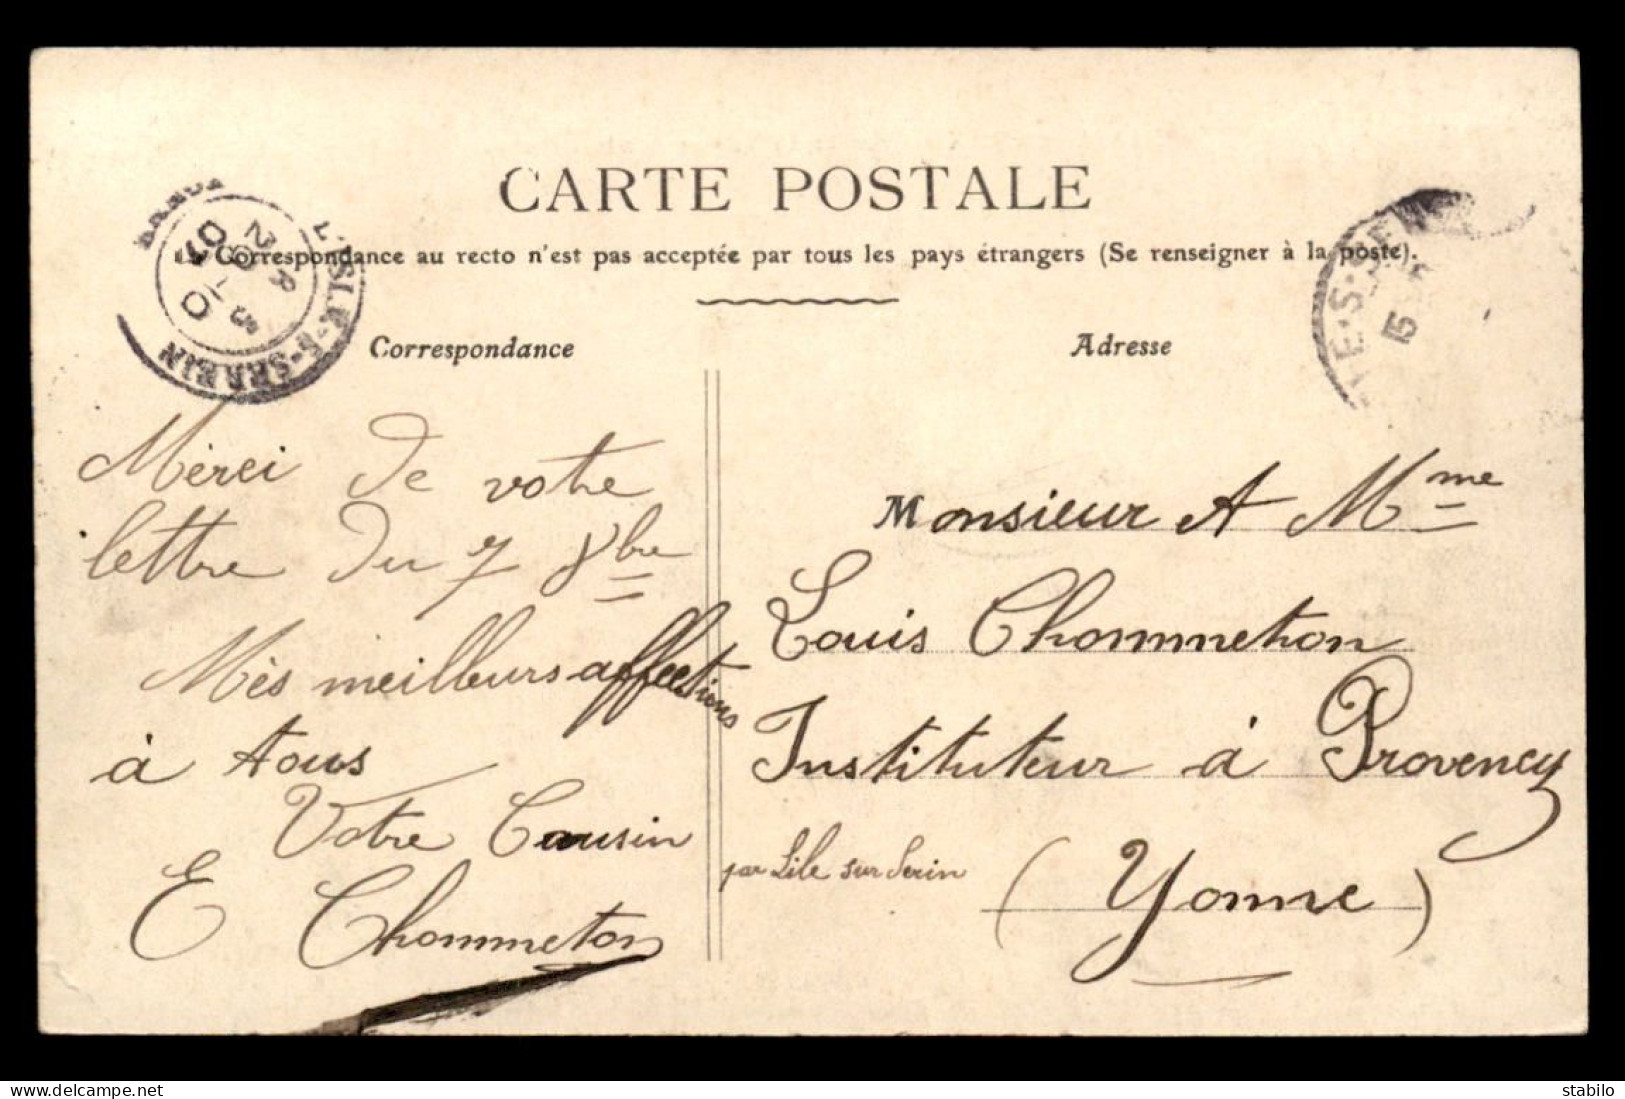 CARTE POSTALE
La Correspondance au recto n'est pas acceptée par tous les pays étrangers (Se renseigner à la poste).
Correspondance
Mérei de votre
lettre du 7 8bre
Mès meilleurs affections
à tous
Votre Cousin
E Chommeton
Adresse
Monsieur et Mme
Louis Chommeton
Instituteur à Provency
par Lile sur Serin (Yonne)
L'ISLE-S-SEREIN
YONNE
stabilo
www.delcampe.net